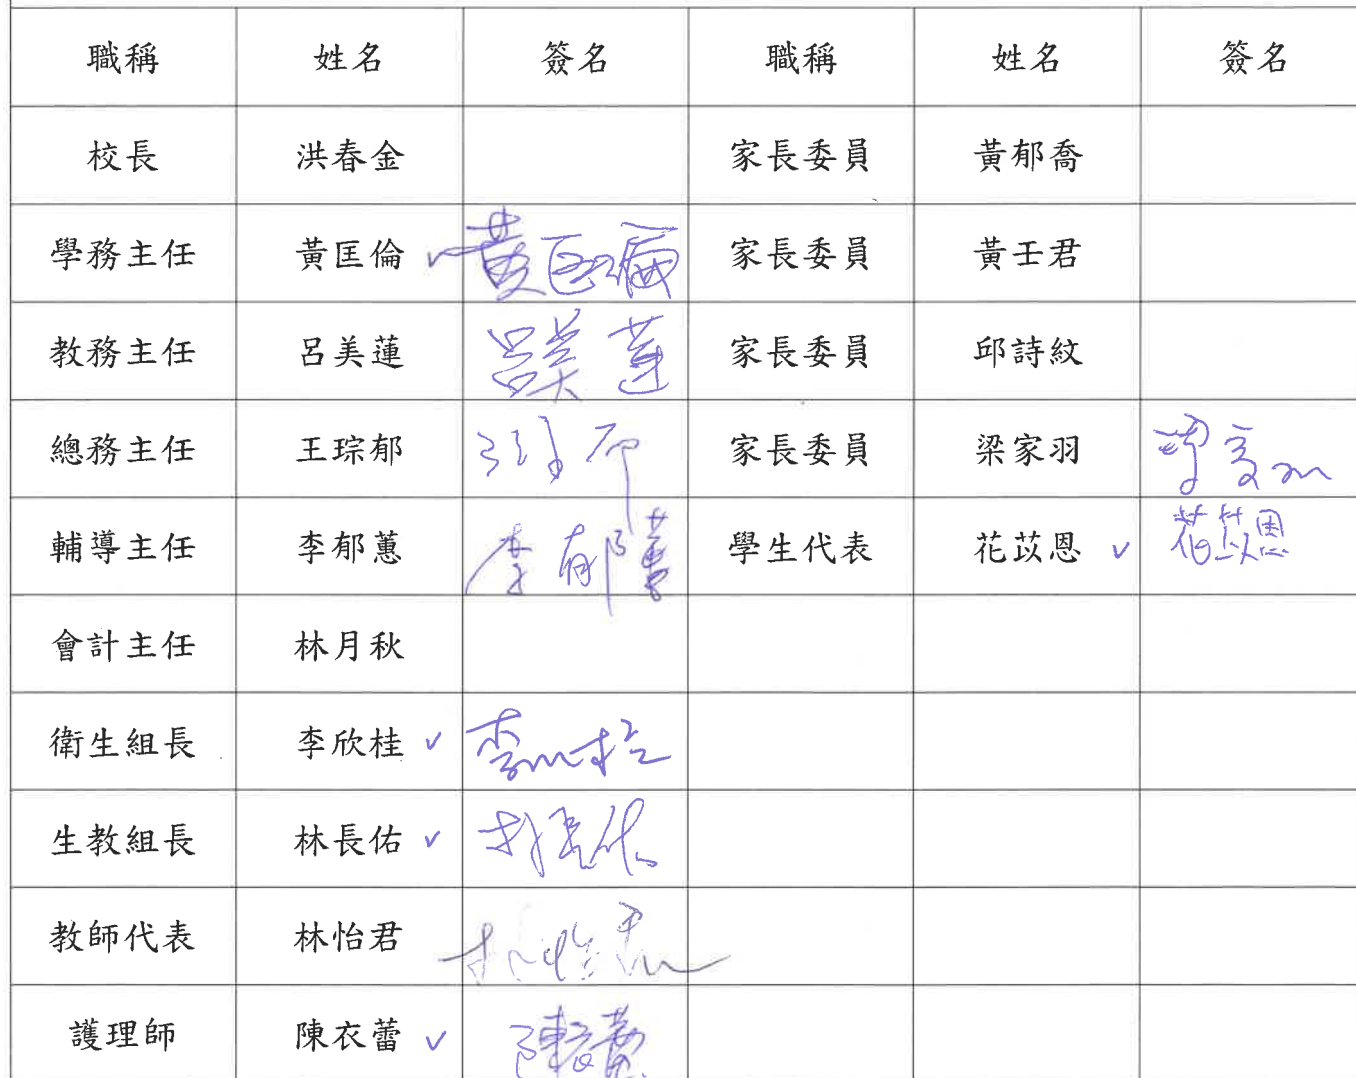 職稱 姓名 簽名 職稱 姓名 簽名
校長 洪春金 家長委員 黃郁喬
學務主任 黃匡倫 ✓ 黃匡倫 家長委員 黃壬君
教務主任 呂美蓮 呂美蓮 家長委員 邱詩紋
總務主任 王琮郁 家長委員 梁家羽
輔導主任 李郁蕙 李郁蕙 學生代表 花苡恩 ✓ 花苡恩
會計主任 林月秋
衛生組長 李欣桂 ✓ 李欣桂
生教組長 林長佑 ✓ 林長佑
教師代表 林怡君 林怡君
護理師 陳衣蕾 ✓ 陳衣蕾